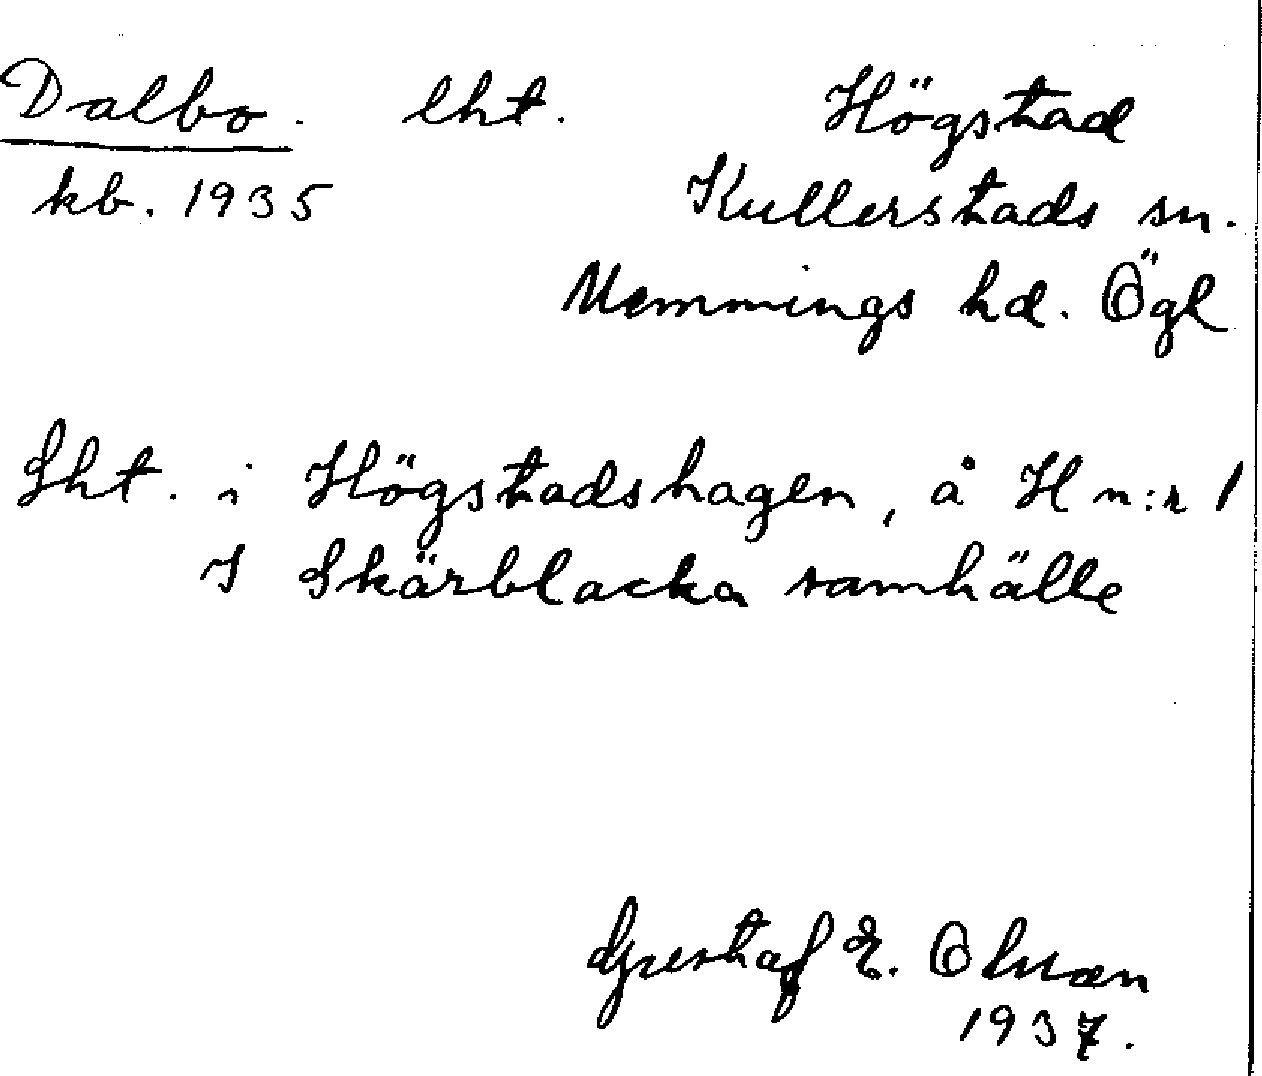 Dalbo. lht. Högstad
kb. 1935 Kullerstads sn.
Memmings hd. Ögl
Lht. i Högstadshagen, å H n:r 1
I Skärblacka samhälle
Gustaf E. Olsson
1937.